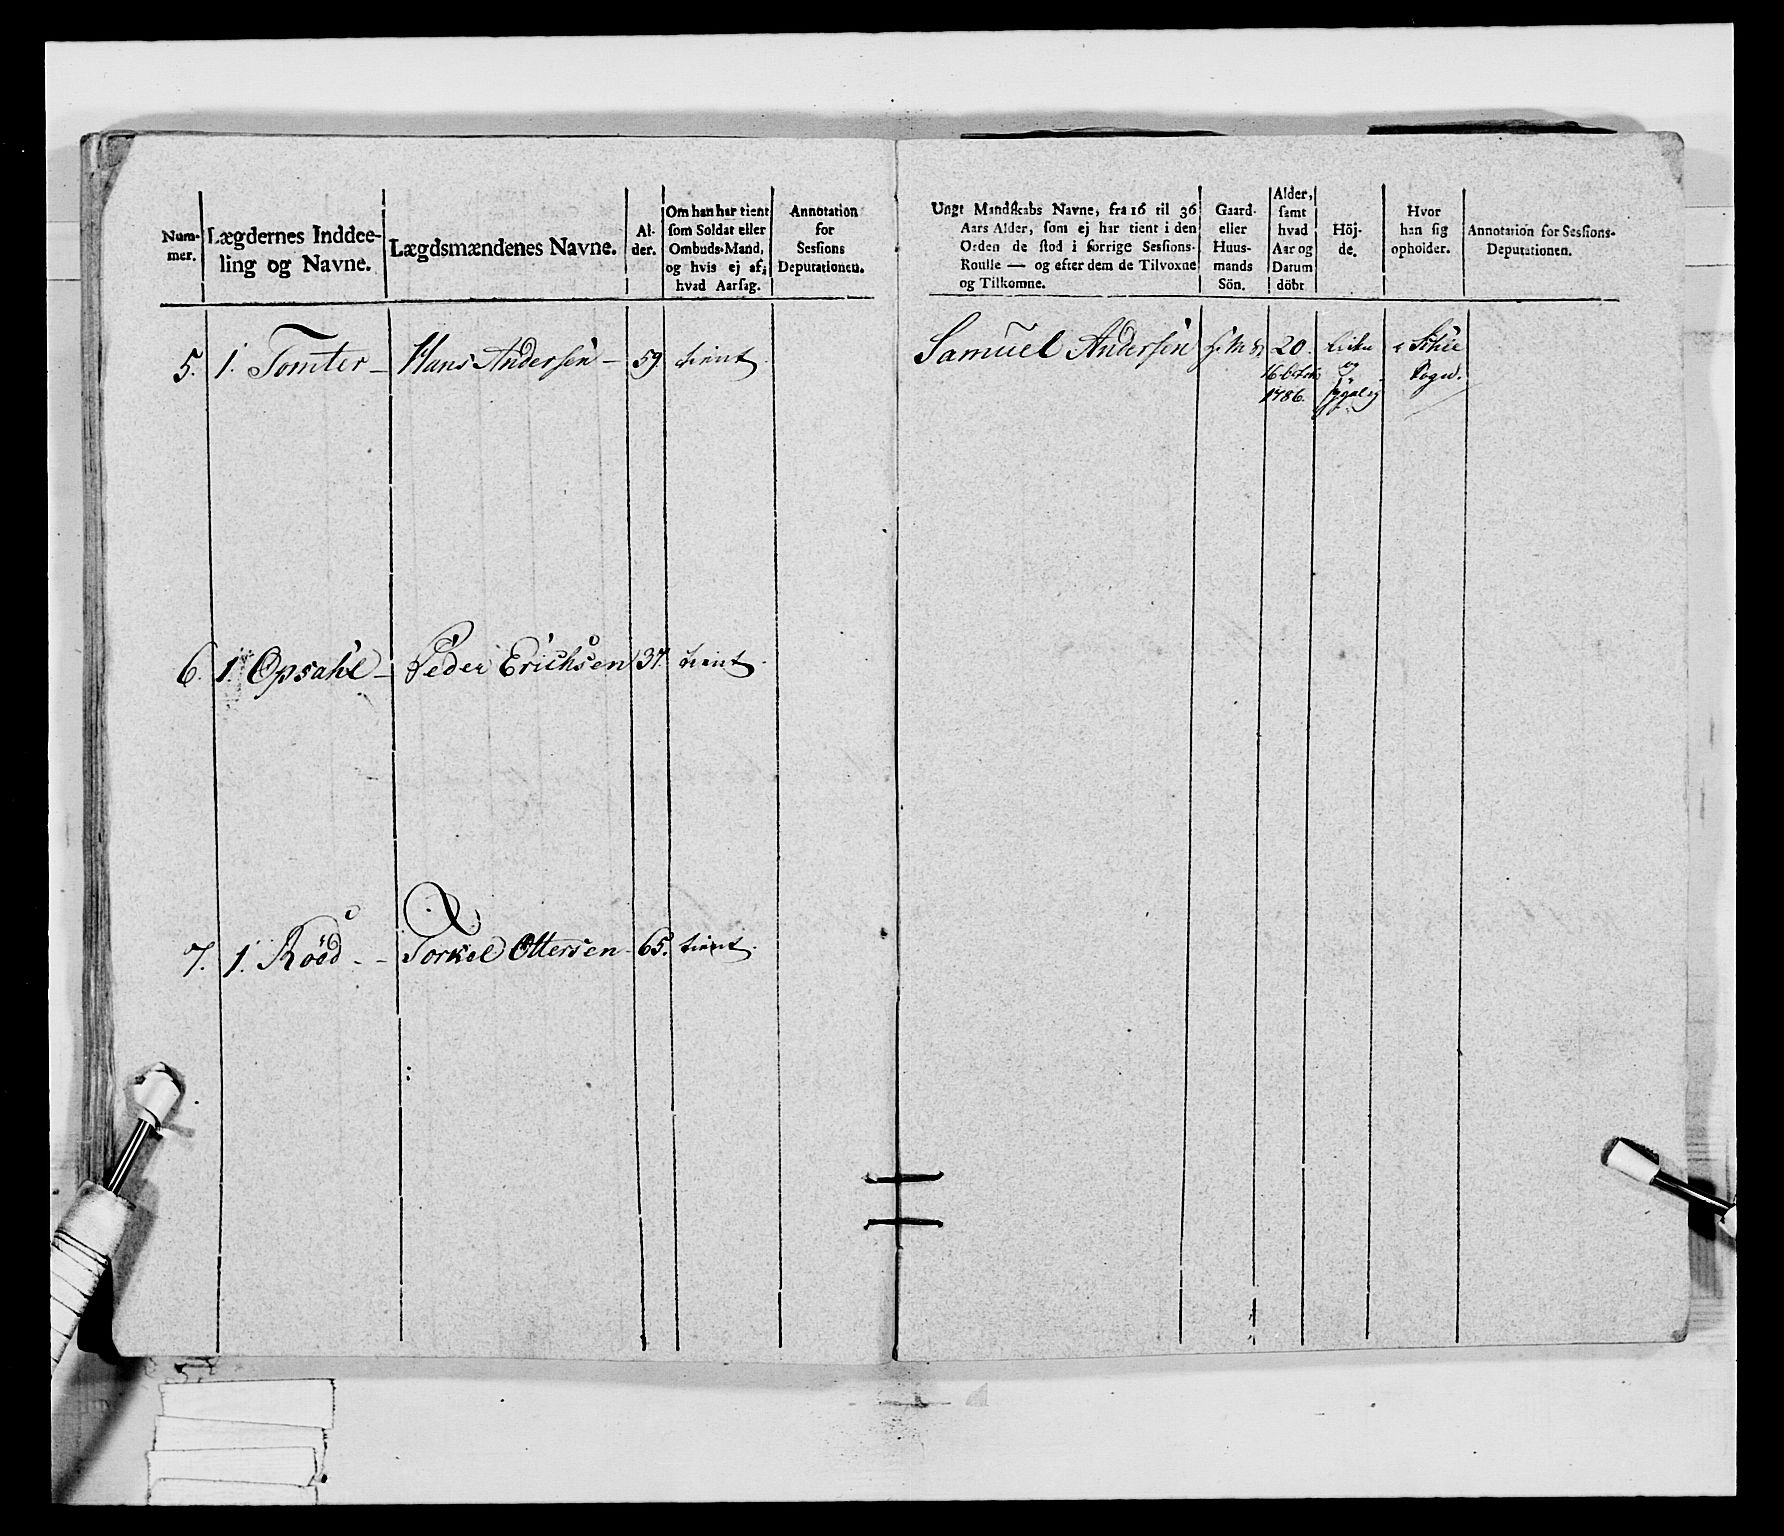 Num-
mer.
Lægdernes Inddee-
ling og Navne.
Lægdsmændenes Navne.
Al-
der.
Om han har tient
som Soldat eller
Ombuds-Mand,
og hvis ej af,
hvad Aarsag.
Annotation
for
Sessions
Deputationen.
Ungt Mandskabs Navne, fra 16 til 36
Aars Alder, som ej har tient i den
Orden de stod i forrige Sessions-
Roulle — og efter dem de Tilvoxne
og Tilkomne.
Gaard-
eller
Huus-
mands
Sön.
Alder,
samt
hvad
Aar og
Datum
döbt
Höj-
de.
Hvor
han sig
opholder.
Annotation for Sessions-
Deputationen.
5. 1. Tomter - Hans Andersen - 59. tient. Samuel Andersen 20.
1786. Sogn.
6. 1. Opsahl - Peder Erichsen 37. tient.
7. 1. Rööd - - Torkel Ottersen - 65. tient.